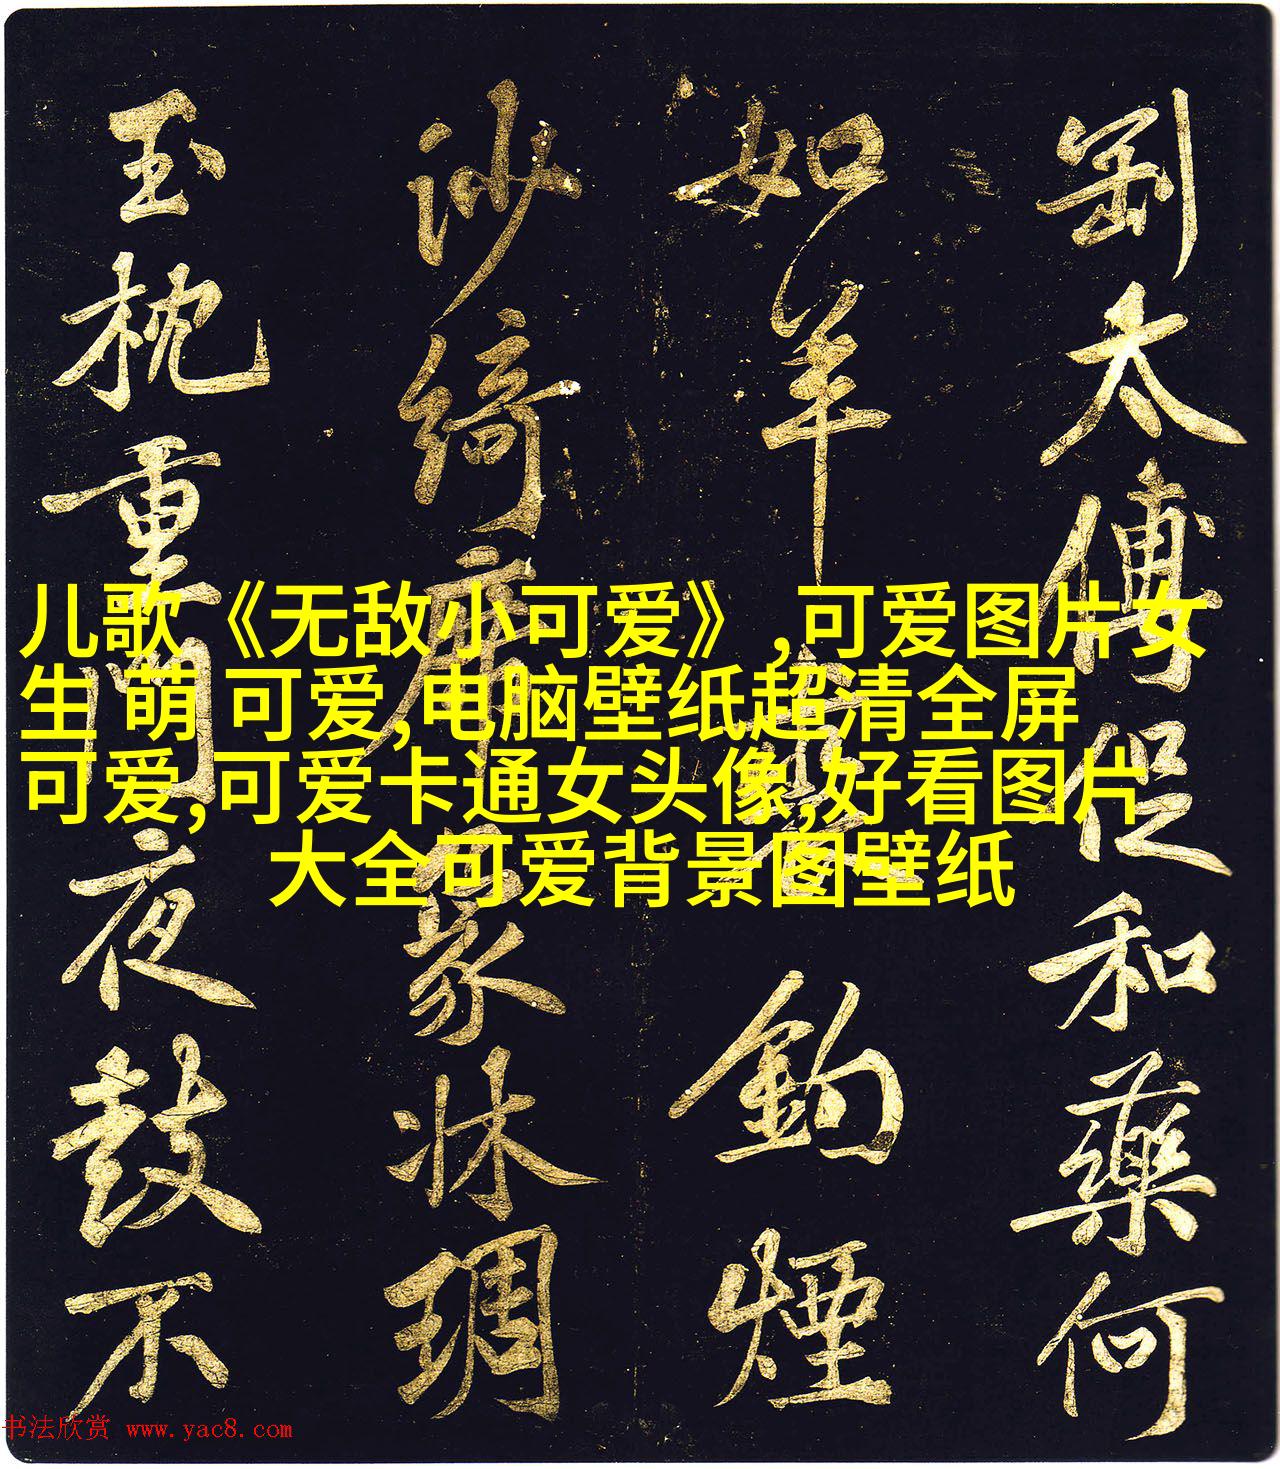 太傅促和藥何
如羊鈎煙
沙綺席象牀琱
玉枕重門夜鼓不
儿歌《无敌小可爱》,可爱图片女
生 萌 可爱,电脑壁纸超清全屏
可爱,可爱卡通女头像,好看图片
大全可爱背景图壁纸
书法欣赏 www.yac8.com